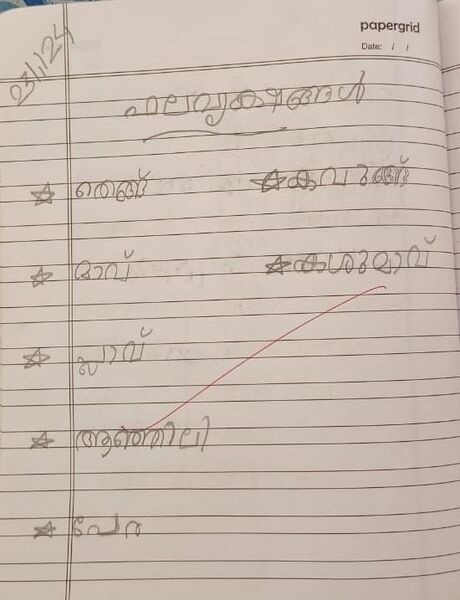 papergrid
Date: / /
23/1/24
ഫലവൃക്ഷങ്ങൾ
☆ തെങ്ങ് ☆ കവുങ്ങ്
☆ മാവ് ☆ കശുമാവ്
☆ പ്ലാവ്
☆ ആഞ്ഞിലി
☆ പേര